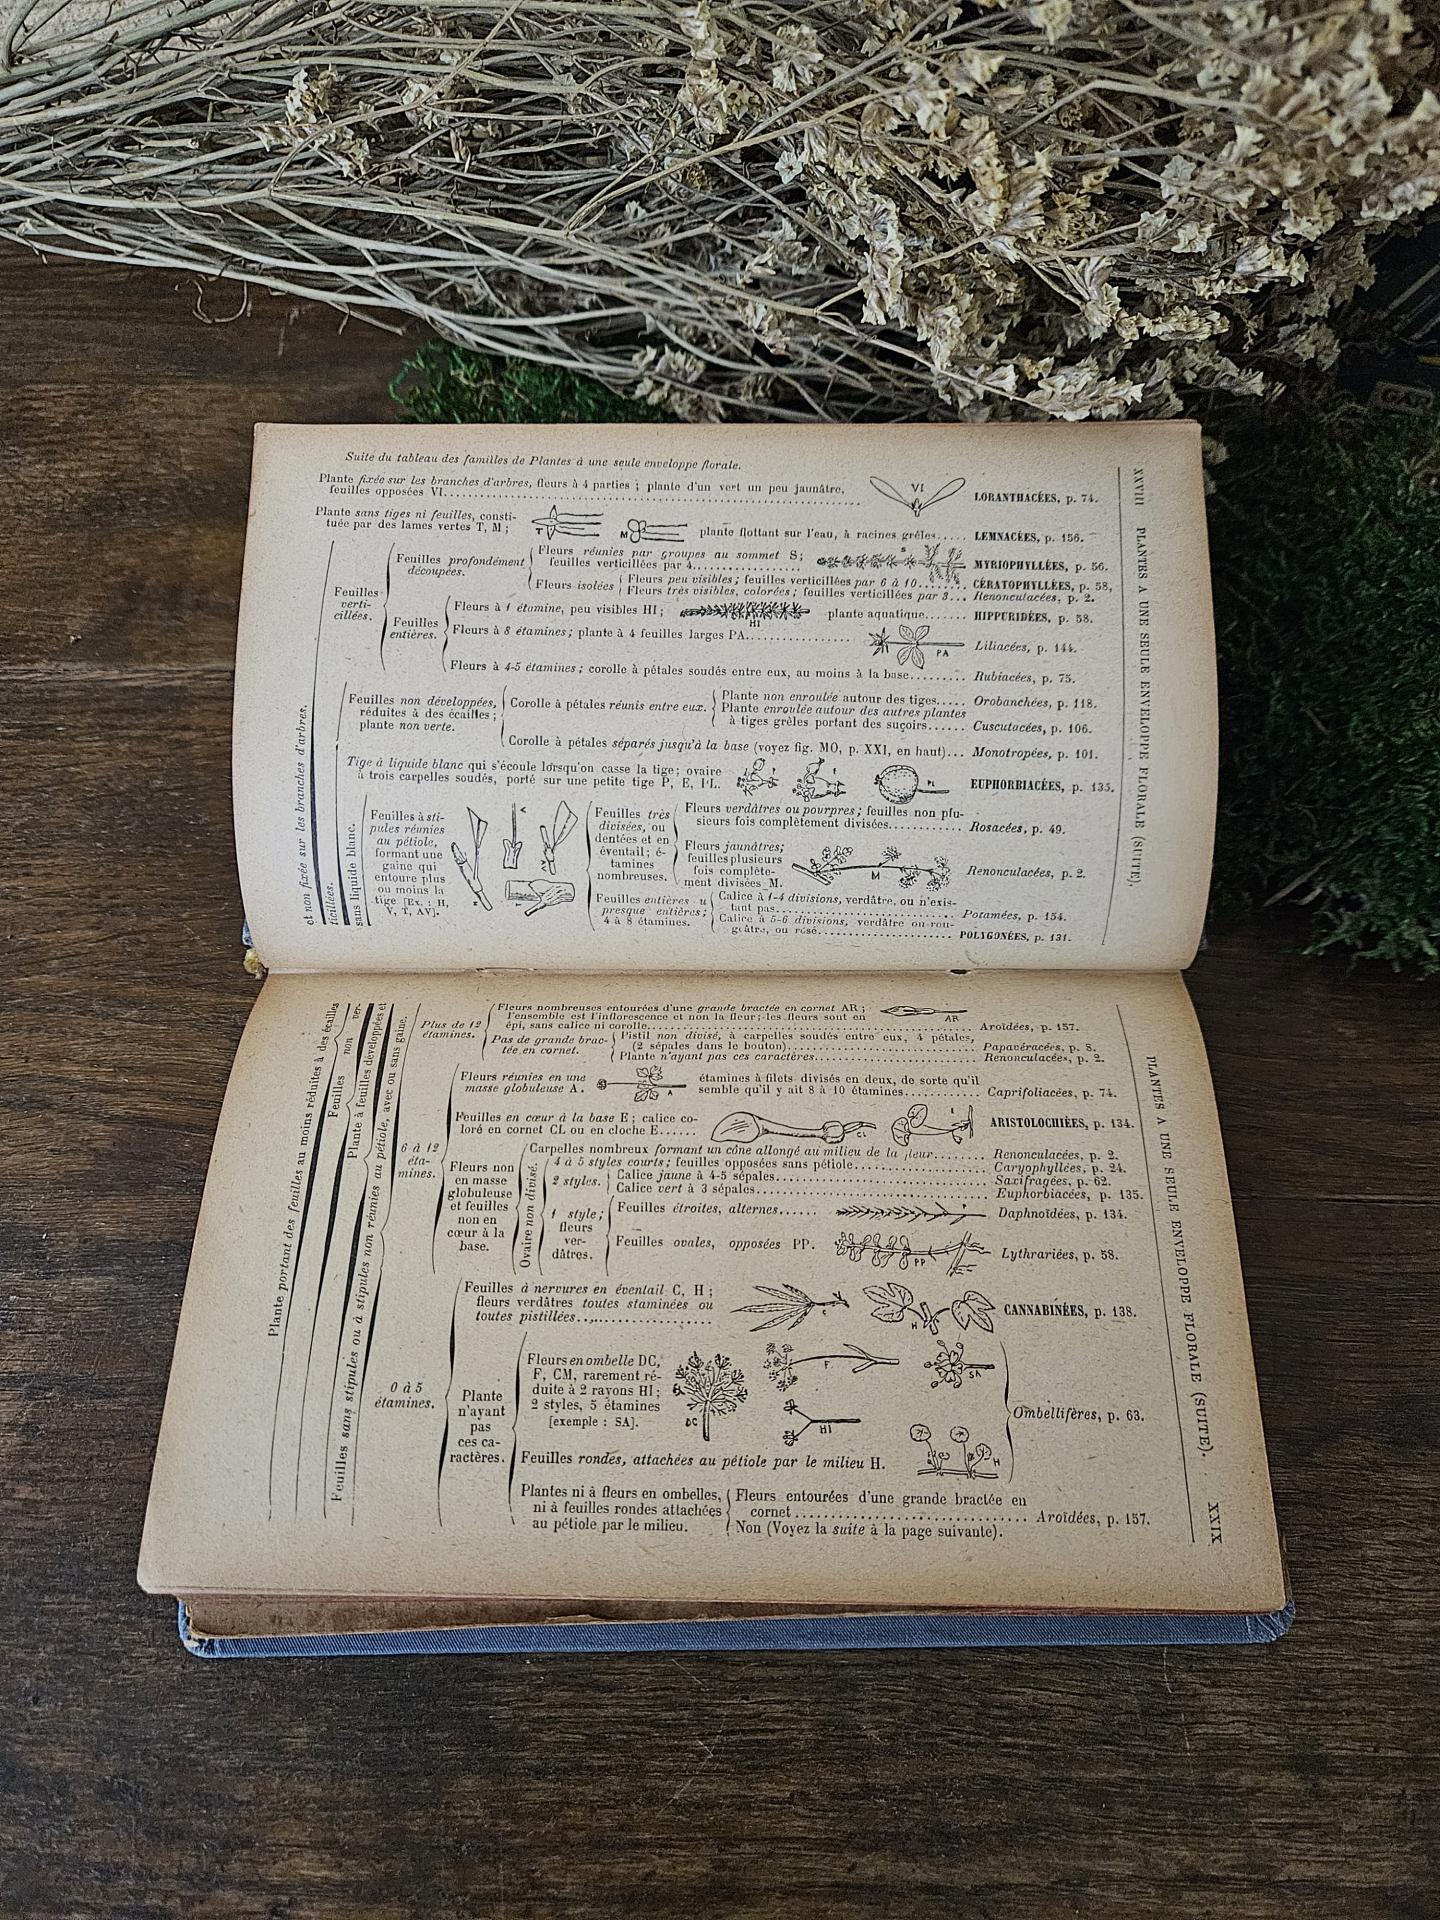 XXVIII PLANTES A UNE SEULE ENVELOPPE FLORALE (SUITE).
Suite du tableau des familles de Plantes à une seule enveloppe florale.
Plante fixée sur les branches d'arbres, fleurs à 4 parties ; plante d'un vert un peu jaunâtre,
feuilles opposées VI. LORANTHACÉES, p. 74.
VI
Plante sans tiges ni feuilles, consti-
tuée par des lames vertes T, M ; T M plante flottant sur l'eau, à racines grêles..... LEMNACÉES, p. 156.
Feuilles
verti-
cillées.
Feuilles profondément
découpées.
Fleurs réunies par groupes au sommet S ;
feuilles verticillées par 4. S MYRIOPHYLLÉES, p. 56.
Fleurs isolées
Fleurs peu visibles ; feuilles verticillées par 6 à 10. CÉRATOPHYLLÉES, p. 58,
Fleurs très visibles, colorées ; feuilles verticillées par 3... Renonculacées, p. 2.
Feuilles
entières.
Fleurs à 1 étamine, peu visibles HI ; HI plante aquatique....... HIPPURIDÉES, p. 58.
Fleurs à 8 étamines ; plante à 4 feuilles larges PA. PA Liliacées, p. 144.
Fleurs à 4-5 étamines ; corolle à pétales soudés entre eux, au moins à la base......... Rubiacées, p. 75.
et non fixée sur les branches d'arbres.
ticillées.
sans liquide blanc.
Feuilles non développées,
réduites à des écailles ;
plante non verte.
Corolle à pétales réunis entre eux.
Plante non enroulée autour des tiges..... Orobanchées, p. 118.
Plante enroulée autour des autres plantes
à tiges grêles portant des suçoirs...... Cuscutacées, p. 106.
Corolle à pétales séparés jusqu'à la base (voyez fig. MO, p. XXI, en haut)... Monotropées, p. 101.
Tige à liquide blanc qui s'écoule lorsqu'on casse la tige ; ovaire
à trois carpelles soudés, porté sur une petite tige P, E, PL. EUPHORBIACÉES, p. 135.
Feuilles à sti-
pules réunies
au pétiole,
formant une
gaîne qui
entoure plus
ou moins la
tige [Ex. : H,
V, T, AV].
Feuilles très
divisées, ou
dentées et en
éventail ; é-
tamines
nombreuses.
Fleurs verdâtres ou pourpres ; feuilles non plu-
sieurs fois complètement divisées........... Rosacées, p. 49.
Fleurs jaunâtres ;
feuilles plusieurs
fois complète-
ment divisées M. M Renonculacées, p. 2.
Feuilles entières ou
presque entières ;
4 à 8 étamines.
Calice à 1-4 divisions, verdâtre, ou n'exis-
tant pas. Potamées, p. 154.
Calice à 5-6 divisions, verdâtre ou rou-
geâtre, ou rosé. POLYGONÉES, p. 131.
PLANTES A UNE SEULE ENVELOPPE FLORALE (SUITE). XXIX
Plante portant des feuilles au moins réduites à des écailles
Feuilles non ver-
Plante à feuilles développées et
Feuilles sans stipules ou à stipules non réunies au pétiole, avec ou sans gaine.
Plus de 12
étamines.
Fleurs nombreuses entourées d'une grande bractée en cornet AR ;
l'ensemble est l'inflorescence et non la fleur ; les fleurs sont en
épi, sans calice ni corolle. AR Aroïdées, p. 157.
Pas de grande brac-
tée en cornet.
Pistil non divisé, à carpelles soudés entre eux, 4 pétales,
(2 sépales dans le bouton). Papavéracées, p. 8.
Plante n'ayant pas ces caractères. Renonculacées, p. 2.
6 à 12
éta-
mines.
Fleurs réunies en une
masse globuleuse A. A étamines à filets divisés en deux, de sorte qu'il
semble qu'il y ait 8 à 10 étamines............ Caprifoliacées, p. 74.
Feuilles en cœur à la base E ; calice co-
loré en cornet CL ou en cloche E...... CL E ARISTOLOCHIÉES, p. 134.
Fleurs non
en masse
globuleuse
et feuilles
non en
cœur à la
base.
Carpelles nombreux formant un cône allongé au milieu de la fleur........ Renonculacées, p. 2.
Ovaire non divisé.
4 à 5 styles courts ; feuilles opposées sans pétiole. Caryophyllées, p. 24.
2 styles.
Calice jaune à 4-5 sépales. Saxifragées, p. 62.
Calice vert à 3 sépales. Euphorbiacées, p. 135.
1 style ;
fleurs
ver-
dâtres.
Feuilles étroites, alternes...... Daphnoïdées, p. 134.
Feuilles ovales, opposées PP. PP Lythrariées, p. 58.
0 à 5
étamines.
Feuilles à nervures en éventail C, H ;
fleurs verdâtres toutes staminées ou
toutes pistillées. C H CANNABINÉES, p. 138.
Plante
n'ayant
pas
ces ca-
ractères.
Fleurs en ombelle DC,
F, CM, rarement ré-
duite à 2 rayons HI ;
2 styles, 5 étamines
[exemple : SA].
DC F SA HI H
Ombellifères, p. 63.
Feuilles rondes, attachées au pétiole par le milieu H.
Plantes ni à fleurs en ombelles,
ni à feuilles rondes attachées
au pétiole par le milieu.
Fleurs entourées d'une grande bractée en
cornet. Aroïdées, p. 157.
Non (Voyez la suite à la page suivante).